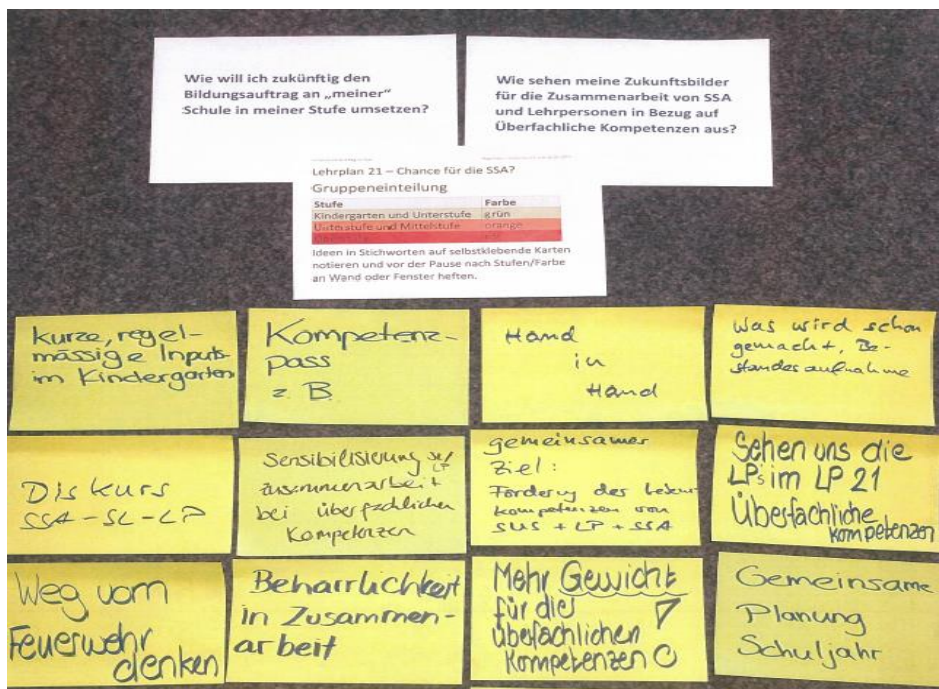 Wie will ich zukünftig den
Bildungsauftrag an „meiner“
Schule in meiner Stufe umsetzen?
Wie sehen meine Zukunftsbilder
für die Zusammenarbeit von SSA
und Lehrpersonen in Bezug auf
Überfachliche Kompetenzen aus?
Lehrplan 21 – Chance für die SSA?
Gruppeneinteilung
Stufe Farbe
Kindergarten und Unterstufe grün
Unterstufe und Mittelstufe orange
Ideen in Stichworten auf selbstklebende Karten
notieren und vor der Pause nach Stufen/Farbe
an Wand oder Fenster heften.
kurze, regel-
mässige Inputs
im Kindergarten
Kompetenz-
pass
z. B.
Hand
in
Hand
Was wird schon
gemacht, Be-
standesaufnahme
Diskurs
SSA-SL-LP
Sensibilisierung
LP
Zusammenarbeit
bei überfachlichen
Kompetenzen
gemeinsames
Ziel:
Förderung der Lebens
kompetenzen von
SUS + LP + SSA
Sehen uns die
LPs im LP 21
Überfachliche
Kompetenzen
Weg vom
Feuerwehr
denken
Beharrlichkeit
in Zusammen-
arbeit
Mehr Gewicht
für die
überfachlichen
Kompetenzen
Gemeinsame
Planung
Schuljahr